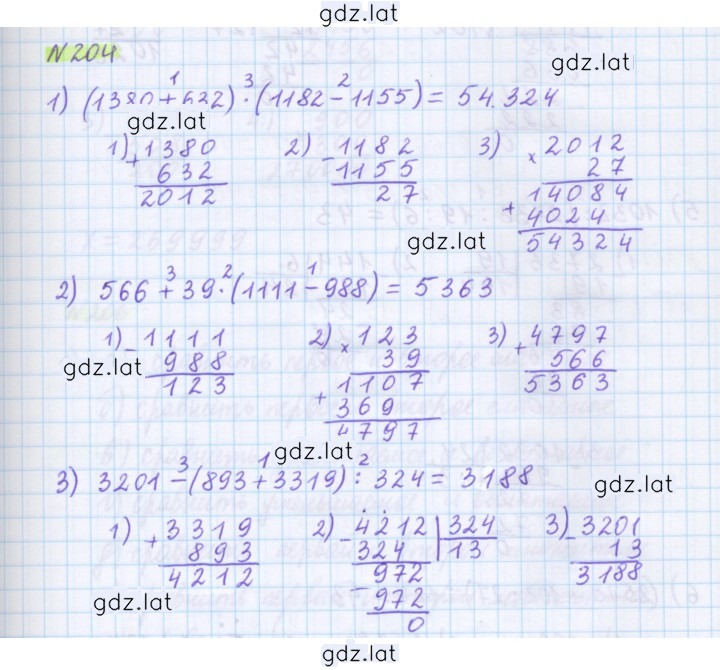 gdz.lat
N 204
gdz.lat
1) (1380 + 632) · (1182 - 1155) = 54 324
gdz.lat
1) + 1380
632
2012
2) - 1182
1155
27
3) × 2012
27
+ 14084
4024
54324
gdz.lat
2) 566 + 39 · (1111 - 988) = 5363
1) - 1111
988
123
gdz.lat
2) × 123
39
+ 1107
369
4797
3) + 4797
566
5363
gdz.lat
3) 3201 - (893 + 3319) : 324 = 3188
gdz.lat
1) + 3319
893
4212
2) - 4212 | 324
324 | 13
- 972
972
0
3) - 3201
13
3188
gdz.lat
gdz.lat